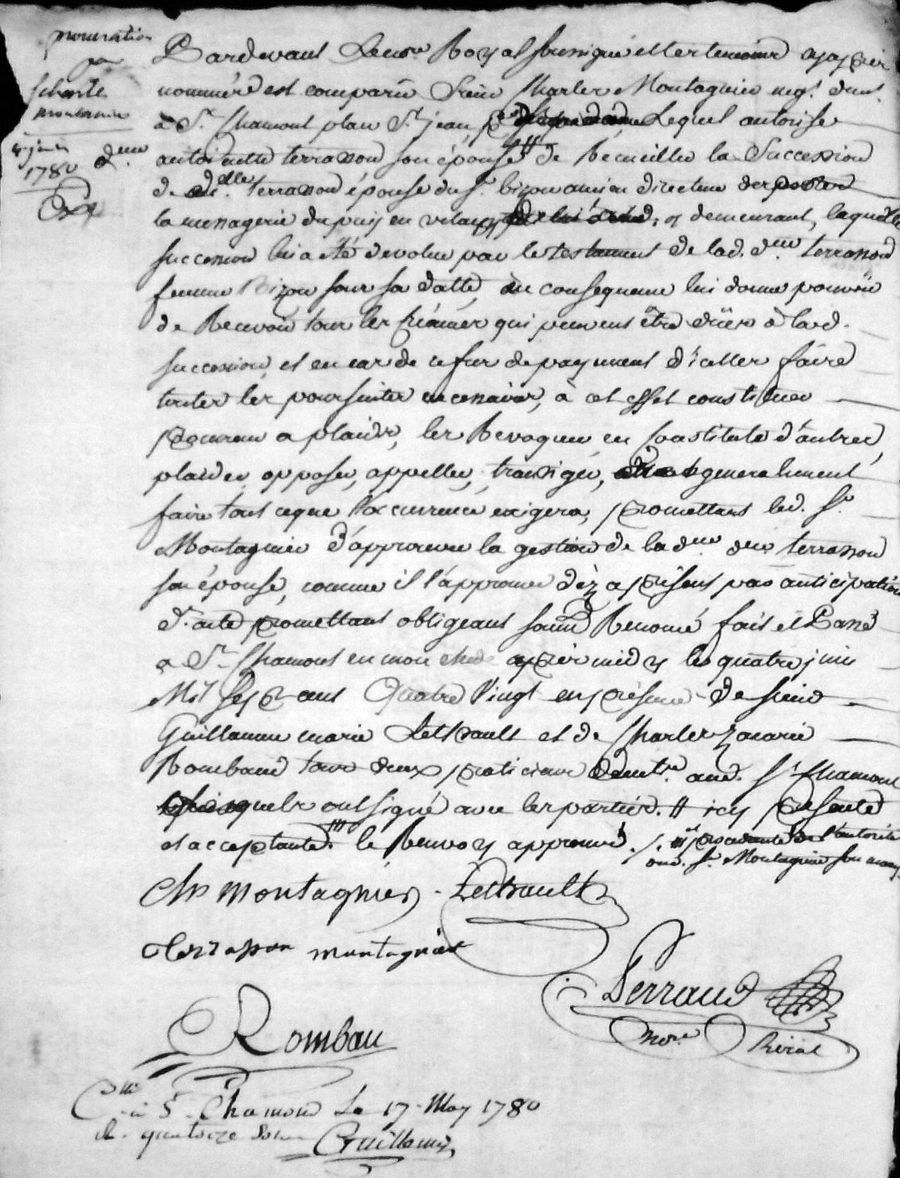 procuration
par
4 juin
1780
Pardevant Le no.re Royal soussigné et les temoins apres
nommés est comparu Sieur Charles Montagnier neg.t dem.t
à S.t Chamont place S.t jean, Lequel autorise
d.me antoinette terrasson son épouse de Recueillir la Succession
de d.lle terrasson épouse du S.r bizou ancien directeur des postes
la menagerie du puy en velay, y demeurant, laquelle
succession lui a été devolue par le testament de lad. d.me terrasson
femme Bizou sous sa datte, en consequence lui donne pouvoir
de Recevoir tous les créances qui peuvent être dües à lad.
succession et en cas de refus de payement d'icelles faire
toutes les poursuites necessaires, à cet effet constituer
procureur a plaider, les Revoquer, en constituer d'autres,
plaider, opposer, appeller, transiger, generalement
faire tout ce que l'occurrence exigera, promettant led. S.r
Montagnier d'approuver la gestion de lad. d.me terrasson
son épouse, comme il l'approuve dèz a present par anticipation
d.t acte promettant obligeant soumt Renoncé fait et Passé
à S.t Chamont en mon etude après midy le quatre juin
Mil Sept cent Quatre Vingt en presence de sieur
Guillaume marie Lethrault et de Charles zacarie
Rombaud tous deux praticiens demt.s aud. S.t Chamont
lesquels ont signé avec les parties. # icy presente
et acceptante le Renvoy approuvé. /. procedante de l'autorité
dud. S.r Montagnier son mary
Ch Montagnier Lethrault
terrasson montagnier
Perraud
no.re Roial
Rombau
C.lé à S.t Chamond Le 17 May 1780
R. quatorze sols
Guillemin